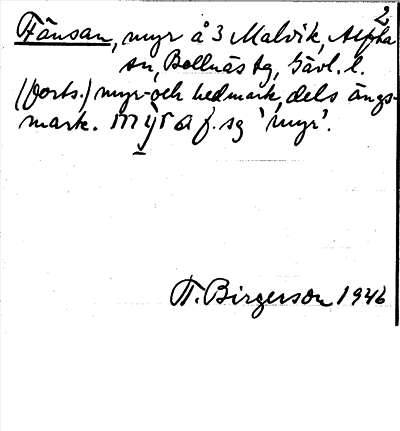 2
Fänsan, myr å 3 Malvik, Alfta
sn, Bollnäs tg, Gävl. l.
(forts.) myr- och hedmark, dels ängs-
mark. mỵ̄ra f. sg 'myr'.
T. Birgerson 1946